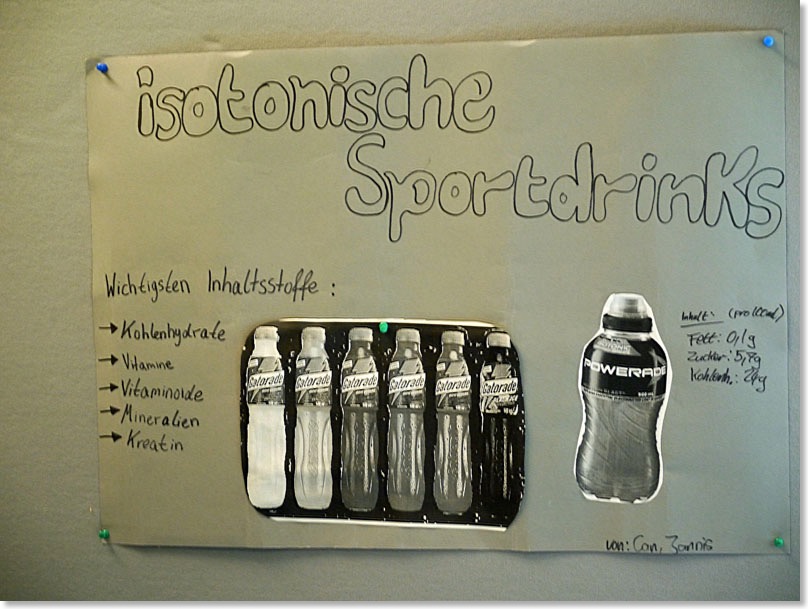 isotonische
Sportdrinks
Wichtigsten Inhaltsstoffe :
→ Kohlenhydrate
→ Vitamine
→ Vitaminoide
→ Mineralien
→ Kreatin
Gatorade Gatorade Gatorade Gatorade Gatorade Gatorade
POWERADE
Inhalt: (pro 100ml)
Fett: 0,1g
Zucker: 5,7g
Kohlenh.:
von: Can,